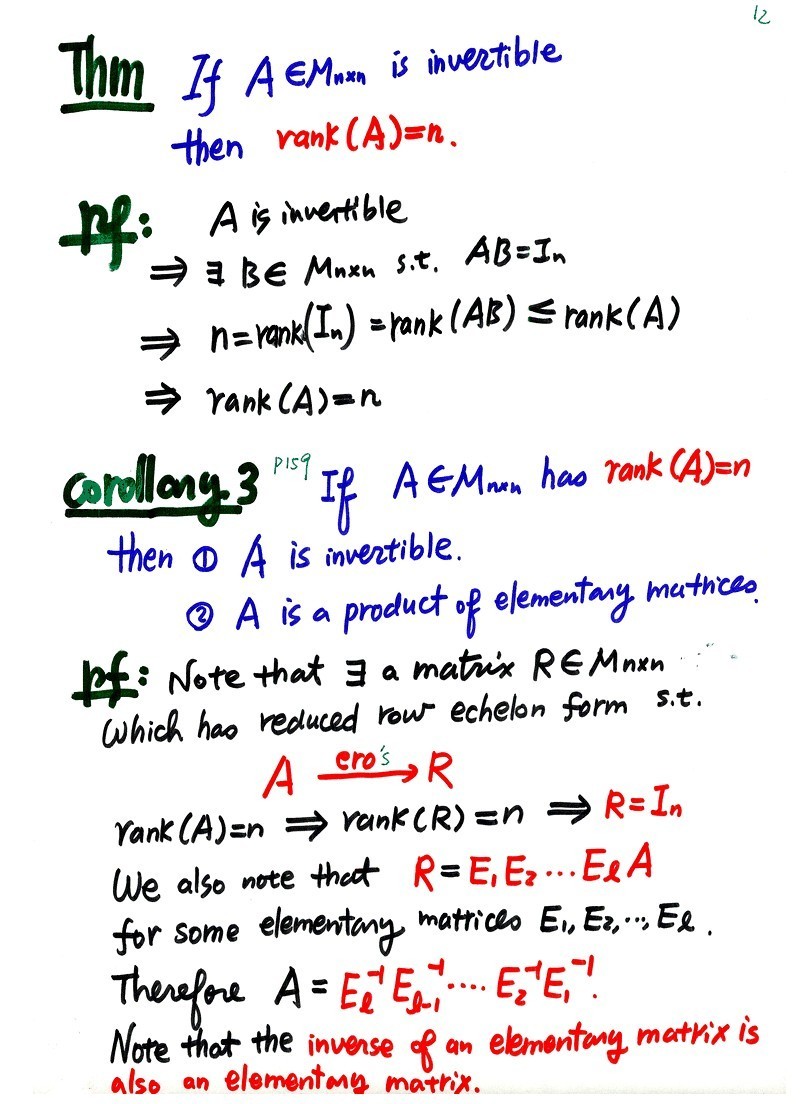 12
Thm If A ∈ Mₙₓₙ is invertible
then rank(A)=n.
pf: A is invertible
⇒ ∃ B ∈ Mₙₓₙ s.t. AB=Iₙ
⇒ n=rank(Iₙ)=rank(AB) ≤ rank(A)
⇒ rank(A)=n
Corollary.3 P159 If A ∈ Mₙₓₙ has rank(A)=n
then ① A is invertible.
② A is a product of elementary matrices.
pf: Note that ∃ a matrix R ∈ Mₙₓₙ
which has reduced row echelon form s.t.
A ero's→ R
rank(A)=n ⇒ rank(R)=n ⇒ R=Iₙ
We also note that R=E₁E₂...Eℓ A
for some elementary mattices E₁, E₂, ..., Eℓ.
Therefore A = Eℓ⁻¹ Eℓ₋₁⁻¹ .... E₂⁻¹ E₁⁻¹.
Note that the inverse of an elementary matrix is
also an elementary matrix.